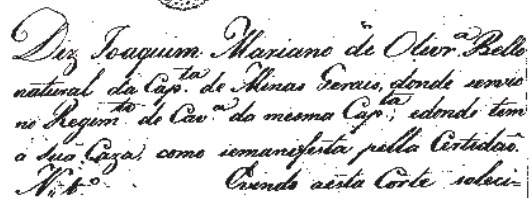 Diz Joaquim Mariano de Olivr.ª Bello
natural da Cap.ta de Minas Gerais, donde servio
no Regim.to de Cav.ª da mesma Cap.ta; edonde tem
a sua Caza, como semanifesta pella Certidaõ
N.º 1.º Evendo aesta Corte soleci-